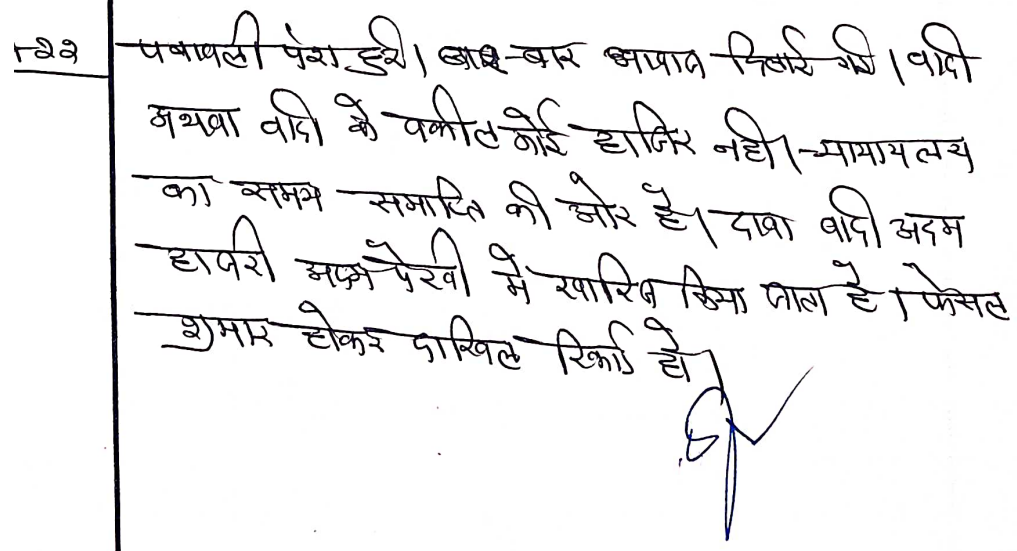 -22 पत्रावली पेश हुयी। बार-बार आवाज दिलाई गयी। वादी
अथवा वादी के वकील कोई हाजिर नही। न्यायालय
का समय समाप्ति की ओर है। दावा वादी अदम
हाजरी अदम पैरवी में खारिज किया जाता है। फैसल
शुमार होकर दाखिल रिकार्ड हो।